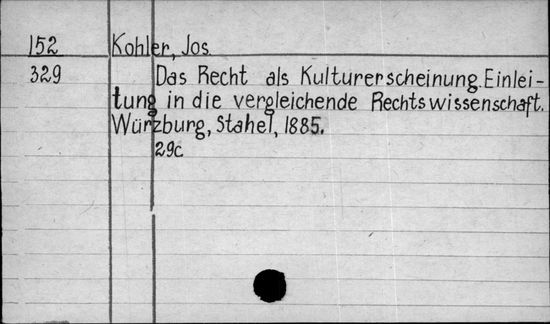 152 Kohler, Jos.
329 Das Recht als Kulturerscheinung. Einlei-
tung in die vergleichende Rechtswissenschaft.
Würzburg, Stahel, 1885.
29c